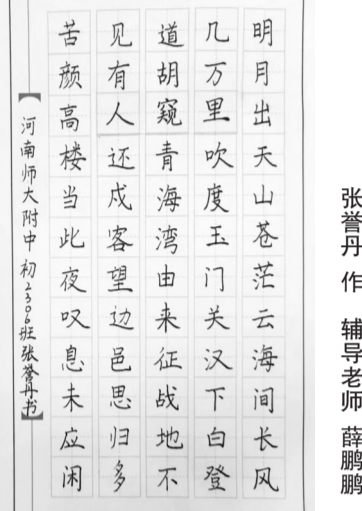 明月出天山苍茫云海间长风
几万里吹度玉门关汉下白登
道胡窥青海湾由来征战地不
见有人还戍客望边邑思归多
苦颜高楼当此夜叹息未应闲
【河南师大附中 初2306班张誉丹书】
张誉丹 作 辅导老师 薛鹏鹏